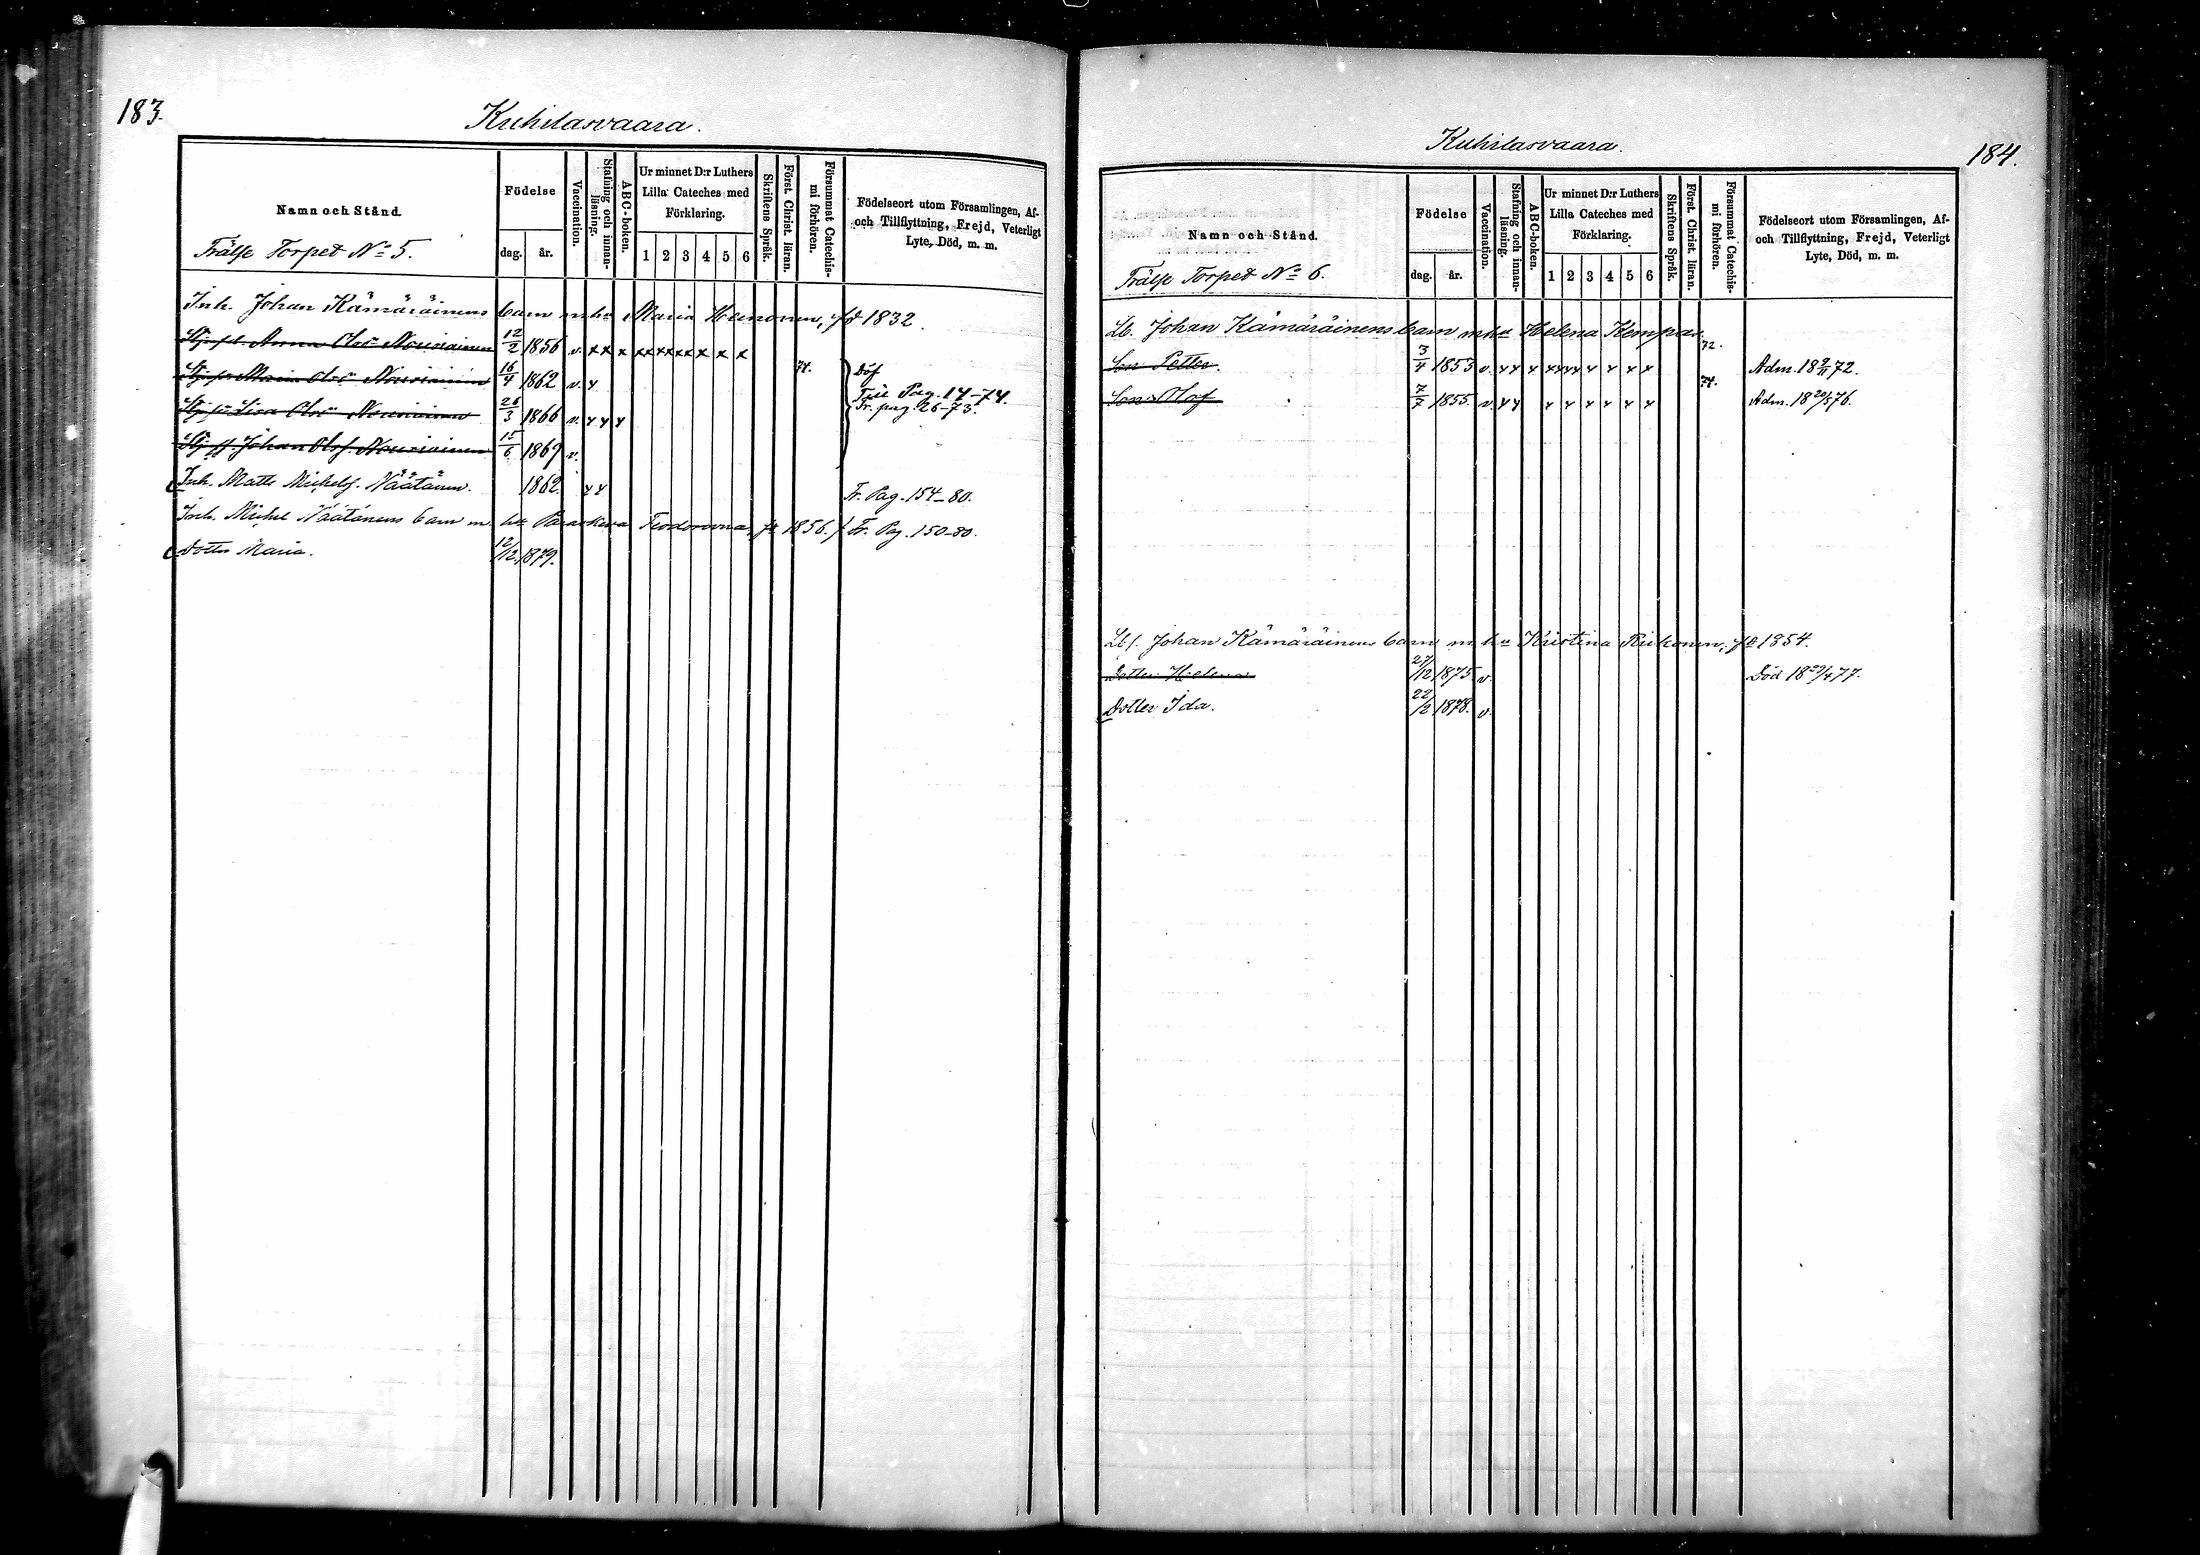 183.
Kuhilasvaara.
Namn och Stånd.
Födelse
dag. år.
Vaccination.
Stafning och innan-
läsning.
ABC-boken.
Ur minnet D:r Luthers
Lilla Cateches med
Förklaring.
1 2 3 4 5 6
Skriftens Språk.
Först. Christ. läran.
Försummat Catechis-
mi förhören.
Födelseort utom Församlingen, Af-
och Tillflyttning, Frejd, Veterligt
Lyte, Död, m. m.
Frälse Torpet No 5.
Inh. Johan Kämäräinens barn m. hu Maria Heinonen, fd 1832.
Anna Olsd Nousiainen 12/2 1856 v. x x x x x x x x x x x x 74. Döf
Maria Olsd Nousiainen 16/4 1862 v. x Frie Pag. 17-74.
Lisa Olsd Nousiainen 26/3 1866 v. x x x Fr. pag. 26-73.
Johan Olsf. Nousiainen 15/6 1869 v.
Inh. Matts Michelsf. Näätänen. 1862. x x Fr. Pag. 154-80.
Inh. Michel Näätänens barn m. hu Paraskeva Feodorovna, fd 1856. Fr. Pag. 150-80.
Dotter Maria. 12/12 1879.
184.
Kuhilasvaara.
Namn och Stånd.
Födelse
dag. år.
Vaccination.
Stafning och innan-
läsning.
ABC-boken.
Ur minnet D:r Luthers
Lilla Cateches med
Förklaring.
1 2 3 4 5 6
Skriftens Språk.
Först. Christ. läran.
Försummat Catechis-
mi förhören.
Födelseort utom Församlingen, Af-
och Tillflyttning, Frejd, Veterligt
Lyte, Död, m. m.
Frälse Torpet No 6.
Lb. Johan Kämäräinens barn m hu Helena Kempas.
Son Petter. 3/4 1853 v. x x x x x x x x x x x 72. Adm. 18 9/11 72.
Son Olof 7/7 1855. v. x x x x x x x x 74. Adm. 18 20/5 76.
Lbf. Johan Kämäräinens barn m hu Kristina Riikonen, fd 1854.
Dotter Helena 27/12 1875 v. Död 18 29/4 77.
Dotter Ida. 22/2 1878. v.